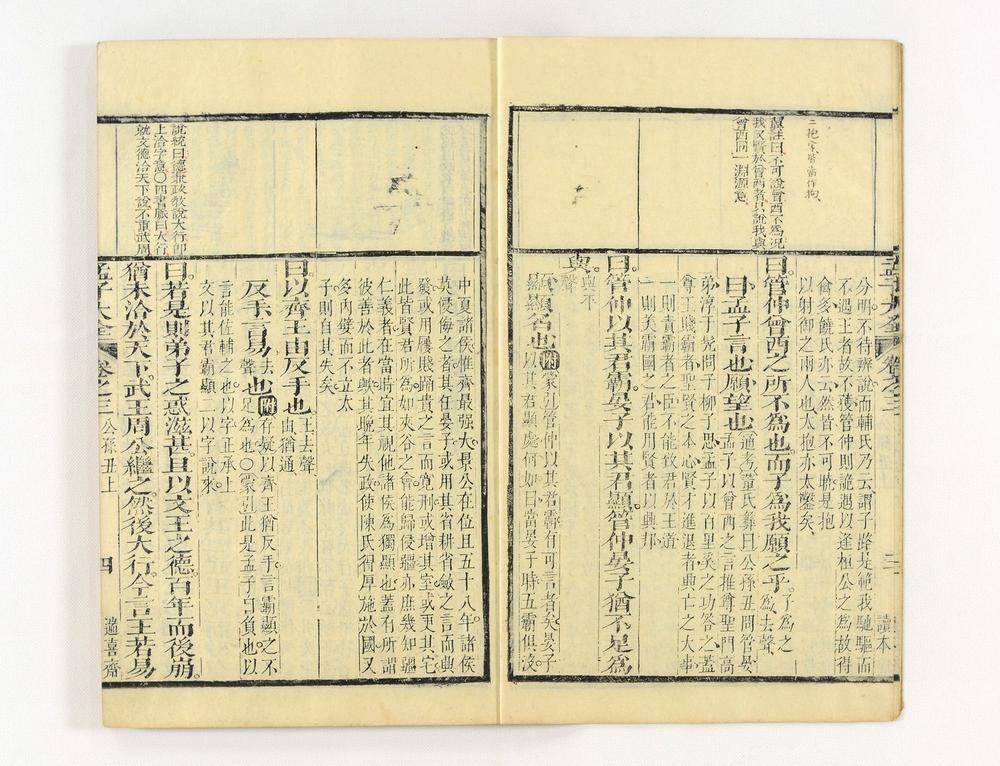 二抱字皆當作拘
翼註曰不可說曾西不為況
我又賢於曾西者只說我與
曾西同一淵源意
分明不待辨說而輔氏乃云謂子路是範我馳驅而
不遇王者故不獲管仲則詭遇以逢桓公之為故得
禽多饒氏亦云然皆不可曉是抱
以射御之兩人也太抱亦太鑿矣
曰管仲曾西之所不為也而子為我願之乎
子為之
為去聲
曰孟子言也願望也
通考董氏彝曰公孫丑問管晏
孟子以曾西之言推尊聖門高
弟淳于髡問子柳子思孟子以百里奚之功答之蓋
尊王賤霸者聖賢之本心賢才進退者興亡之大事
一則責霸者之臣不能致君於王道
一則美霸國之君能用賢者以興邦
曰管仲以其君霸晏子以其君顯管仲晏子猶不足為
與
與平
聲
顯顯名也
附蒙引管仲以其君霸有可言者矣晏子
以其君顯處何如曰當晏子時五霸俱沒
孟子大全 卷之三 三 讀本
中夏諸侯惟齊最强大景公在位且五十八年諸侯
莫侵侮之者其任晏子或用其省耕省斂之言而興
發或用屨賤踊貴之言而寬刑或增其室或更其宅
此皆賢君所為如夾谷之會能歸侵疆亦庶幾知疆
仁義者在當時宜其視他諸侯為獨顯也蓋有所謂
彼善於此者與其晚年失政使陳氏得厚施於國又
多內嬖而不立太
子則自其失矣
曰以齊王由反手也
王去聲
由猶通
反手言易
去
聲
也
附存疑以齊王猶反手言霸顯之不
足為也〇蒙引此是孟子自負也以
言能佐輔之也以字正承上
文以其君霸顯二以字說來
曰若是則弟子之惑滋甚且以文王之德百年而後崩
猶未洽於天下武王周公繼之然後大行今言王若易
說統曰德兼政教說大行即
上洽字意〇四書脈曰大行
就文德洽天下說不重武周
孟子大全 卷之三 公孫丑上 四 遄喜齋